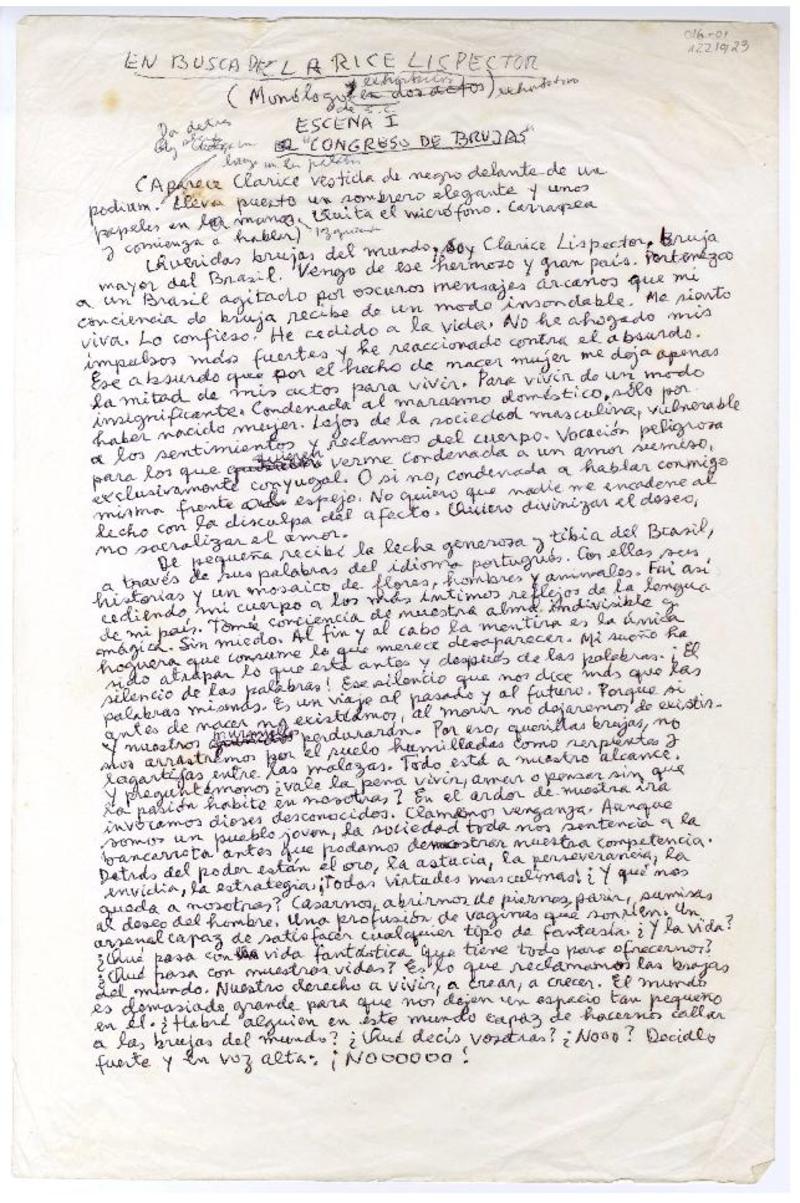 016-01
122 19/23
EN BUSCA DE CLARICE LISPECTOR
(Monólogo en dos actos)
ESCENA I
EL "CONGRESO DE BRUJAS"
(Aparece Clarice vestida de negro delante de un
podium. Lleva puesto un sombrero elegante y unos
papeles en la mano. Quita el micrófono. Carraspea
y comienza a hablar)
Queridas brujas del mundo, soy Clarice Lispector, bruja
mayor del Brasil. Vengo de ese hermoso y gran país. Pertenezco
a un Brasil agitado por oscuros mensajes arcanos que mi
conciencia de bruja recibe de un modo insondable. Me siento
viva. Lo confieso. He cedido a la vida. No he ahogado mis
impulsos más fuertes y he reaccionado contra el absurdo.
Ese absurdo que por el hecho de nacer mujer me deja apenas
la mitad de mis actos para vivir. Para vivir de un modo
insignificante. Condenada al marasmo doméstico, sólo por
haber nacido mujer. Lejos de la sociedad masculina, vulnerable
a los sentimientos y reclamos del cuerpo. Vocación peligrosa
para los que quieren verme condenada a un amor sumiso,
exclusivamente conyugal. O si no, condenada a hablar conmigo
misma frente al espejo. No quiero que nadie me encadene al
lecho con la disculpa del afecto. Quiero divinizar el deseo,
no sacralizar el amor.
De pequeña recibí la leche generosa y tibia del Brasil,
a través de sus palabras del idioma portugués. Con ellas, sus
historias y un mosaico de flores, hombres y animales. Fui así
cediendo mi cuerpo a los más íntimos reflejos de la lengua
de mi país. Tomé conciencia de nuestra alma indivisible y
mágica. Sin miedo. Al fin y al cabo la mentira es la única
hoguera que consume lo que merece desaparecer. Mi sueño ha
sido atrapar lo que está antes y después de las palabras. ¡El
silencio de las palabras! Ese silencio que nos dice más que las
palabras mismas. Es un viaje al pasado y al futuro. Porque si
antes de nacer no existíamos, al morir no dejaremos de existir.
Y nuestros murmullos perdurarán. Por eso, queridas brujas, no
nos arrastremos por el suelo humilladas como serpientes y
lagartijas entre las malezas. Todo está a nuestro alcance.
Y preguntémonos ¿vale la pena vivir, amar o pensar sin que
la pasión habite en nosotras? En el ardor de nuestra ira
invocamos dioses desconocidos. Clamamos venganza. Aunque
somos un pueblo joven, la sociedad toda nos sentencia a la
bancarrota antes que podamos demostrar nuestra competencia.
Detrás del poder están el oro, la astucia, la perseverancia, la
envidia, la estrategia ¡Todas virtudes masculinas! ¿Y qué nos
queda a nosotras? Casarnos, abrirnos de piernas, parir, sumisas
al deseo del hombre. Una profusión de vaginas que sonríen. Un
arsenal capaz de satisfacer cualquier tipo de fantasía. ¿Y la vida?
¿Qué pasa con la vida fantástica que tiene todo para ofrecernos?
¿Qué pasa con nuestras vidas? Es lo que reclamamos las brujas
del mundo. Nuestro derecho a vivir, a crear, a crecer. El mundo
es demasiado grande para que nos dejen un espacio tan pequeño
en él. ¿Habrá alguien en este mundo capaz de hacernos callar
a las brujas del mundo? ¿Qué decís vosotras? ¿Nooo? Decidlo
fuerte y en voz alta: ¡Noooooo!